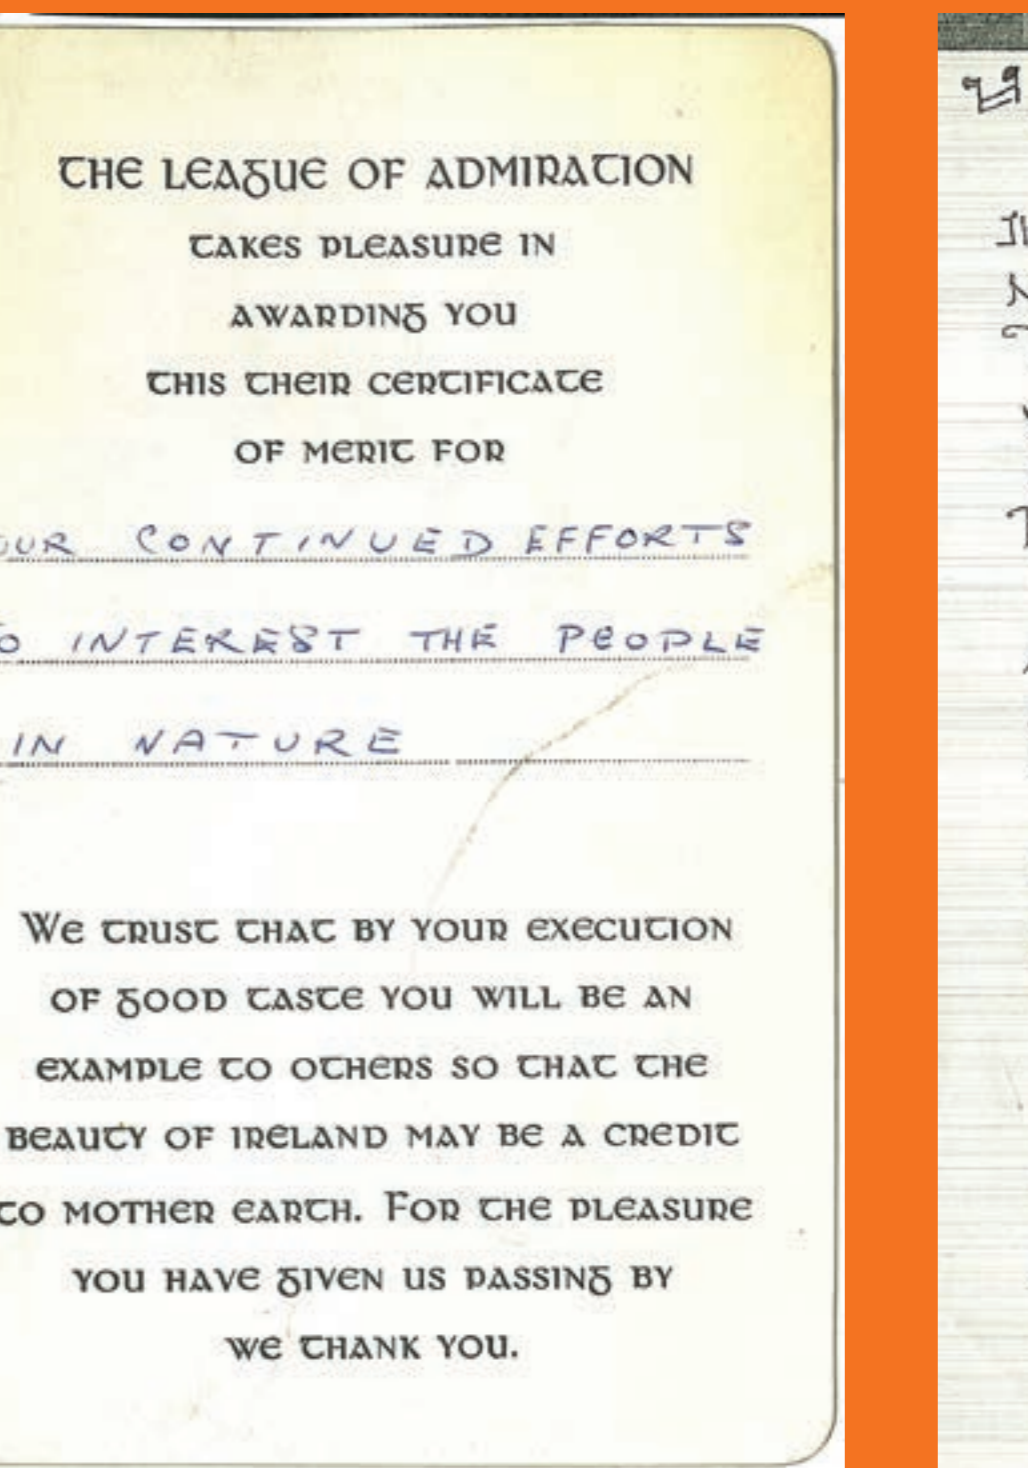 THE LEAGUE OF ADMIRATION
TAKES PLEASURE IN
AWARDING YOU
THIS THEIR CERTIFICATE
OF MERIT FOR
OUR CONTINUED EFFORTS
O INTEREST THE PEOPLE
IN NATURE
We TRUST THAT BY YOUR EXECUTION
OF GOOD TASTE YOU WILL BE AN
EXAMPLE TO OTHERS SO THAT THE
BEAUTY OF IRELAND MAY BE A CREDIT
TO MOTHER EARTH. FOR THE PLEASURE
YOU HAVE GIVEN US PASSING BY
WE THANK YOU.